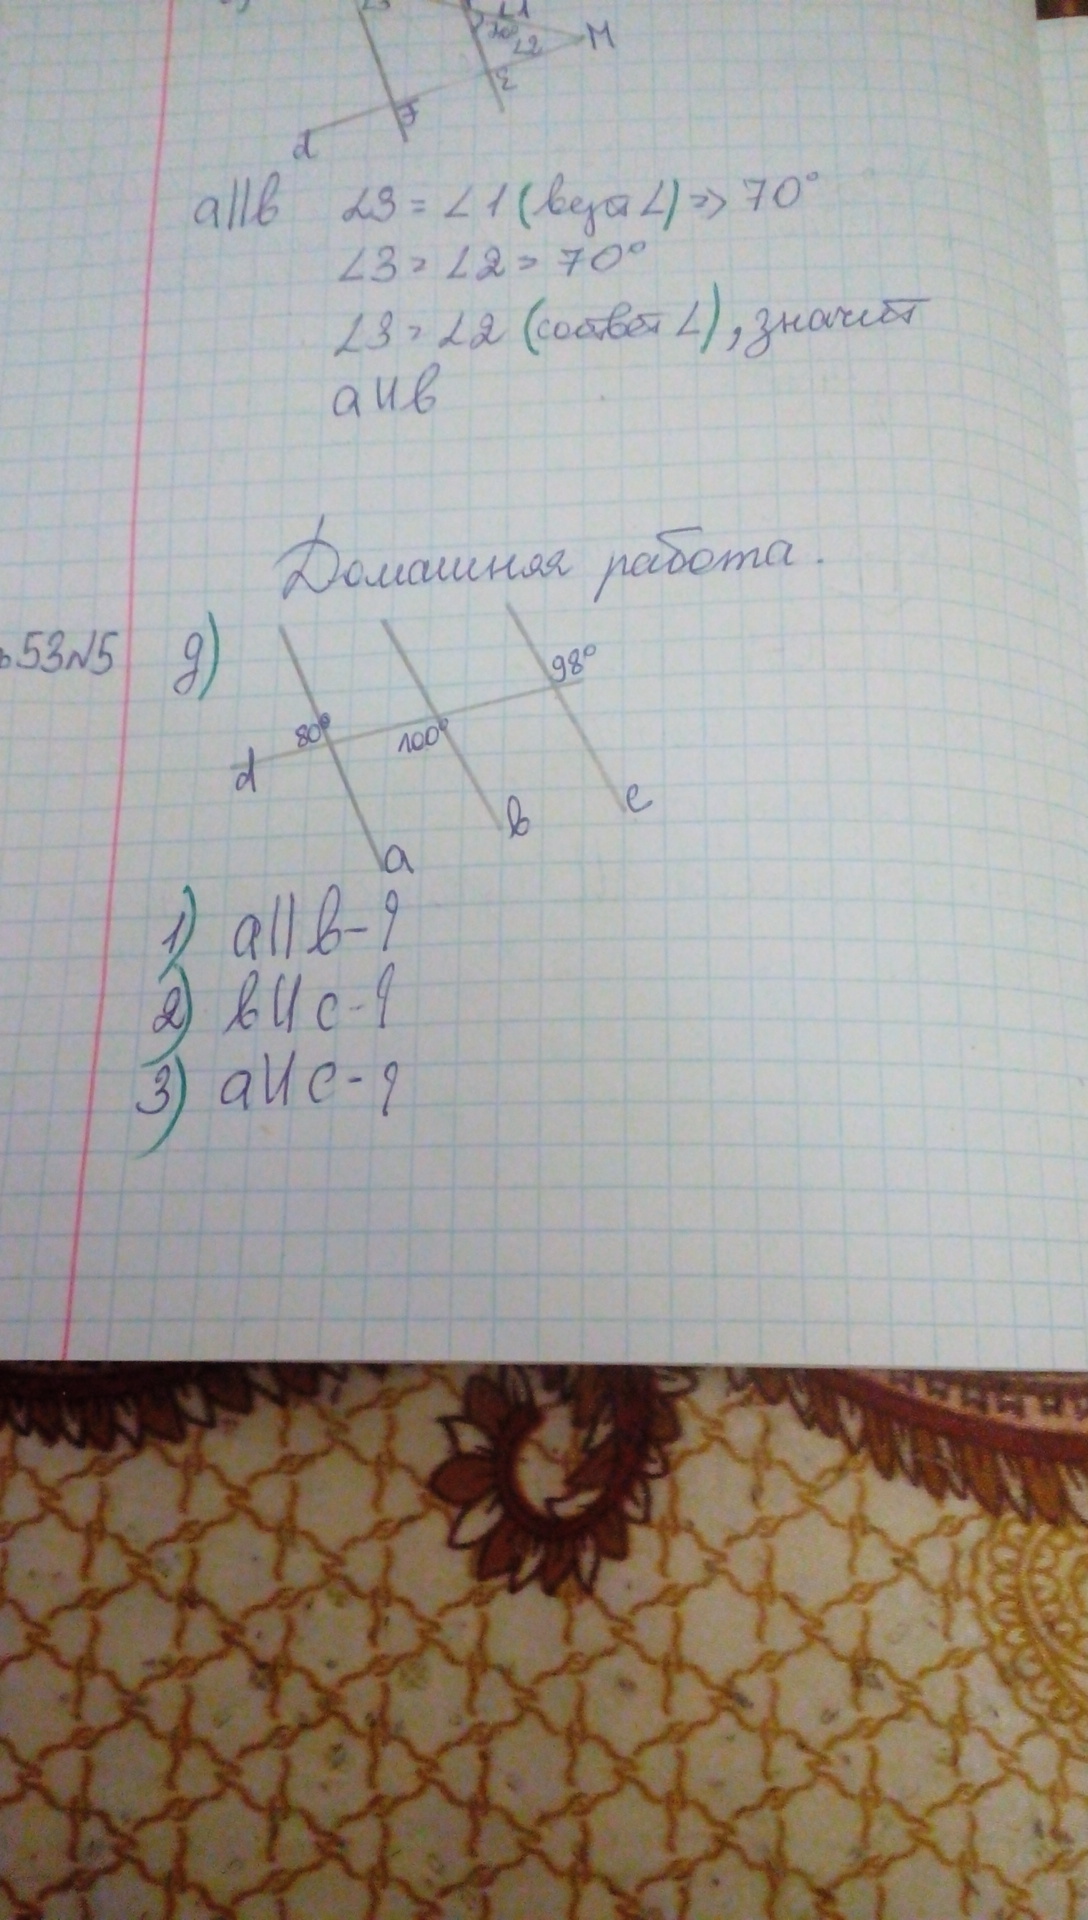 ∠1
∠2
M
E
F
d
a||b ∠3 = ∠1 (верт ∠) => 70°
∠3 = ∠2 = 70°
∠3 = ∠2 (соотв ∠), значит
a||b
Домашняя работа.
53№5 д)
98°
80°
100°
d
c
b
a
1) a||b-?
2) b||c-?
3) a||c-?